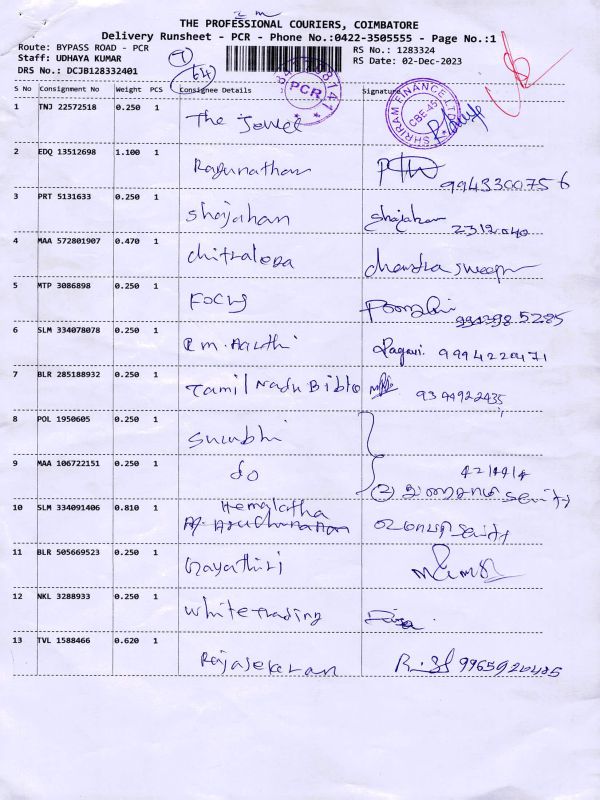 THE PROFESSIONAL COURIERS, COIMBATORE
Delivery Runsheet - PCR - Phone No.:0422-3505555 - Page No.:1
Route: BYPASS ROAD - PCR RS No.: 1283324
Staff: UDHAYA KUMAR RS Date: 02-Dec-2023
DRS No.: DCJB128332401
64
PCR
SHRIRAM FINANCE LTD
CBE-45
S No Consignment No Weight PCS Consignee Details Signature
1 TNJ 22572518 0.250 1 The Jewel
2 EDQ 13512698 1.100 1 Ragunathan 9943300756
3 PRT 5131633 0.250 1 Shajahan Shajahan
4 MAA 572801907 0.470 1 chitralega
5 MTP 3086898 0.250 1 Focus
6 SLM 334078078 0.250 1 9994220471
7 BLR 285188932 0.250 1 Tamil Nadu Biblo 9344922435
8 POL 1950605 0.250 1 Surubhi
9 MAA 106722151 0.250 1 do
10 SLM 334091406 0.810 1 Hemalatha
11 BLR 505669523 0.250 1 Gayathiri
12 NKL 3288933 0.250 1 White trading
13 TVL 1588466 0.620 1 Rajasekaran